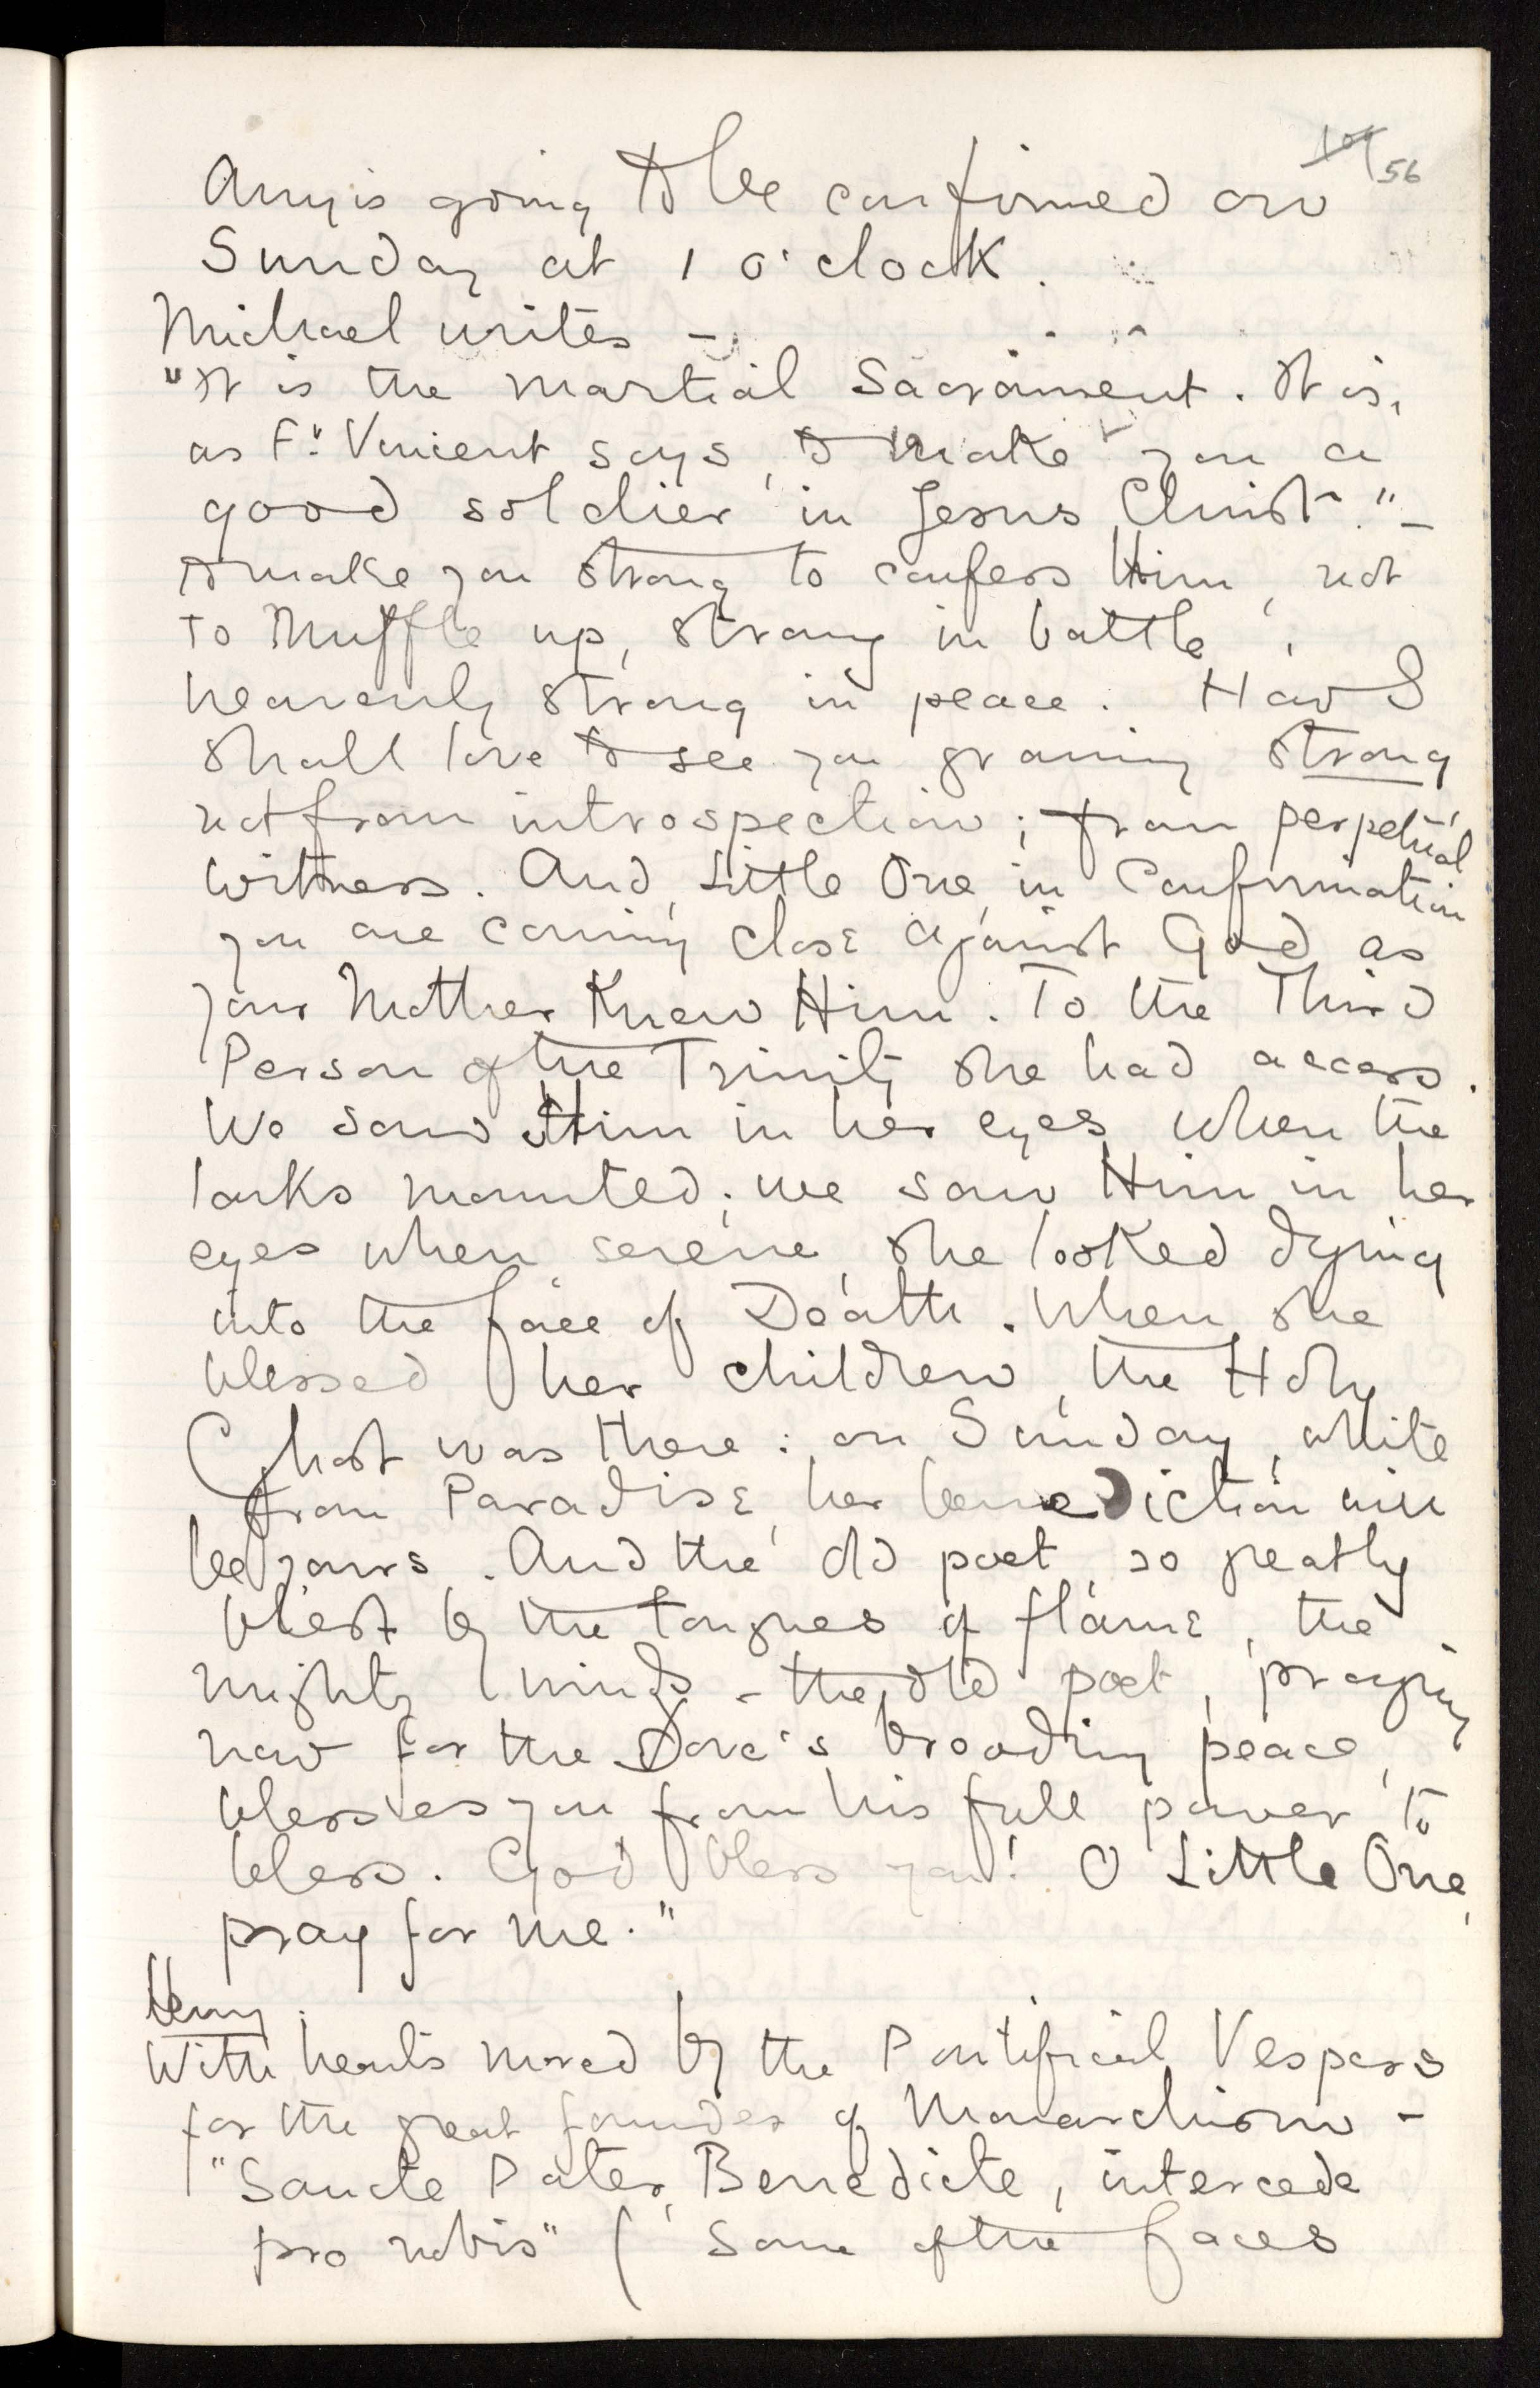 56
Amy is going to be confirmed on
Sunday at 1 o'clock.
Michael writes –
"It is the martial Sacrament. It is,
as Fr. Vincent says, to make you a
good soldier in Jesus Christ." –
to make you strong to confess Him, not
to muffle up, strong in battle,
heavenly strong in peace. How I
shall love to see you growing strong
not from introspection; from perpetual
witness. And, Little One, in Confirmation
you are coming close against God as
your Mother knew Him. To the Third
Person of the Trinity she had access.
We saw Him in her eyes when the
larks mounted; we saw Him in her
eyes when serene, she looked dying
into the face of Death. When she
blessed her children, the Holy
Ghost was there: on Sunday, white
from Paradise, her benediction will
be yours. And the old poet so greatly
blest by the tongues of flame, the
mighty winds – the old poet, praying
now for the Dove's brooding peace,
blesses you from his full power to
bless. God bless you! O Little One,
pray for me."
Henry:
With hearts moved by the Pontifical Vespers
for the great founder of Monarchism –
"Sancte Pater Benedicte, intercede
pro nobis" (Some of the faces